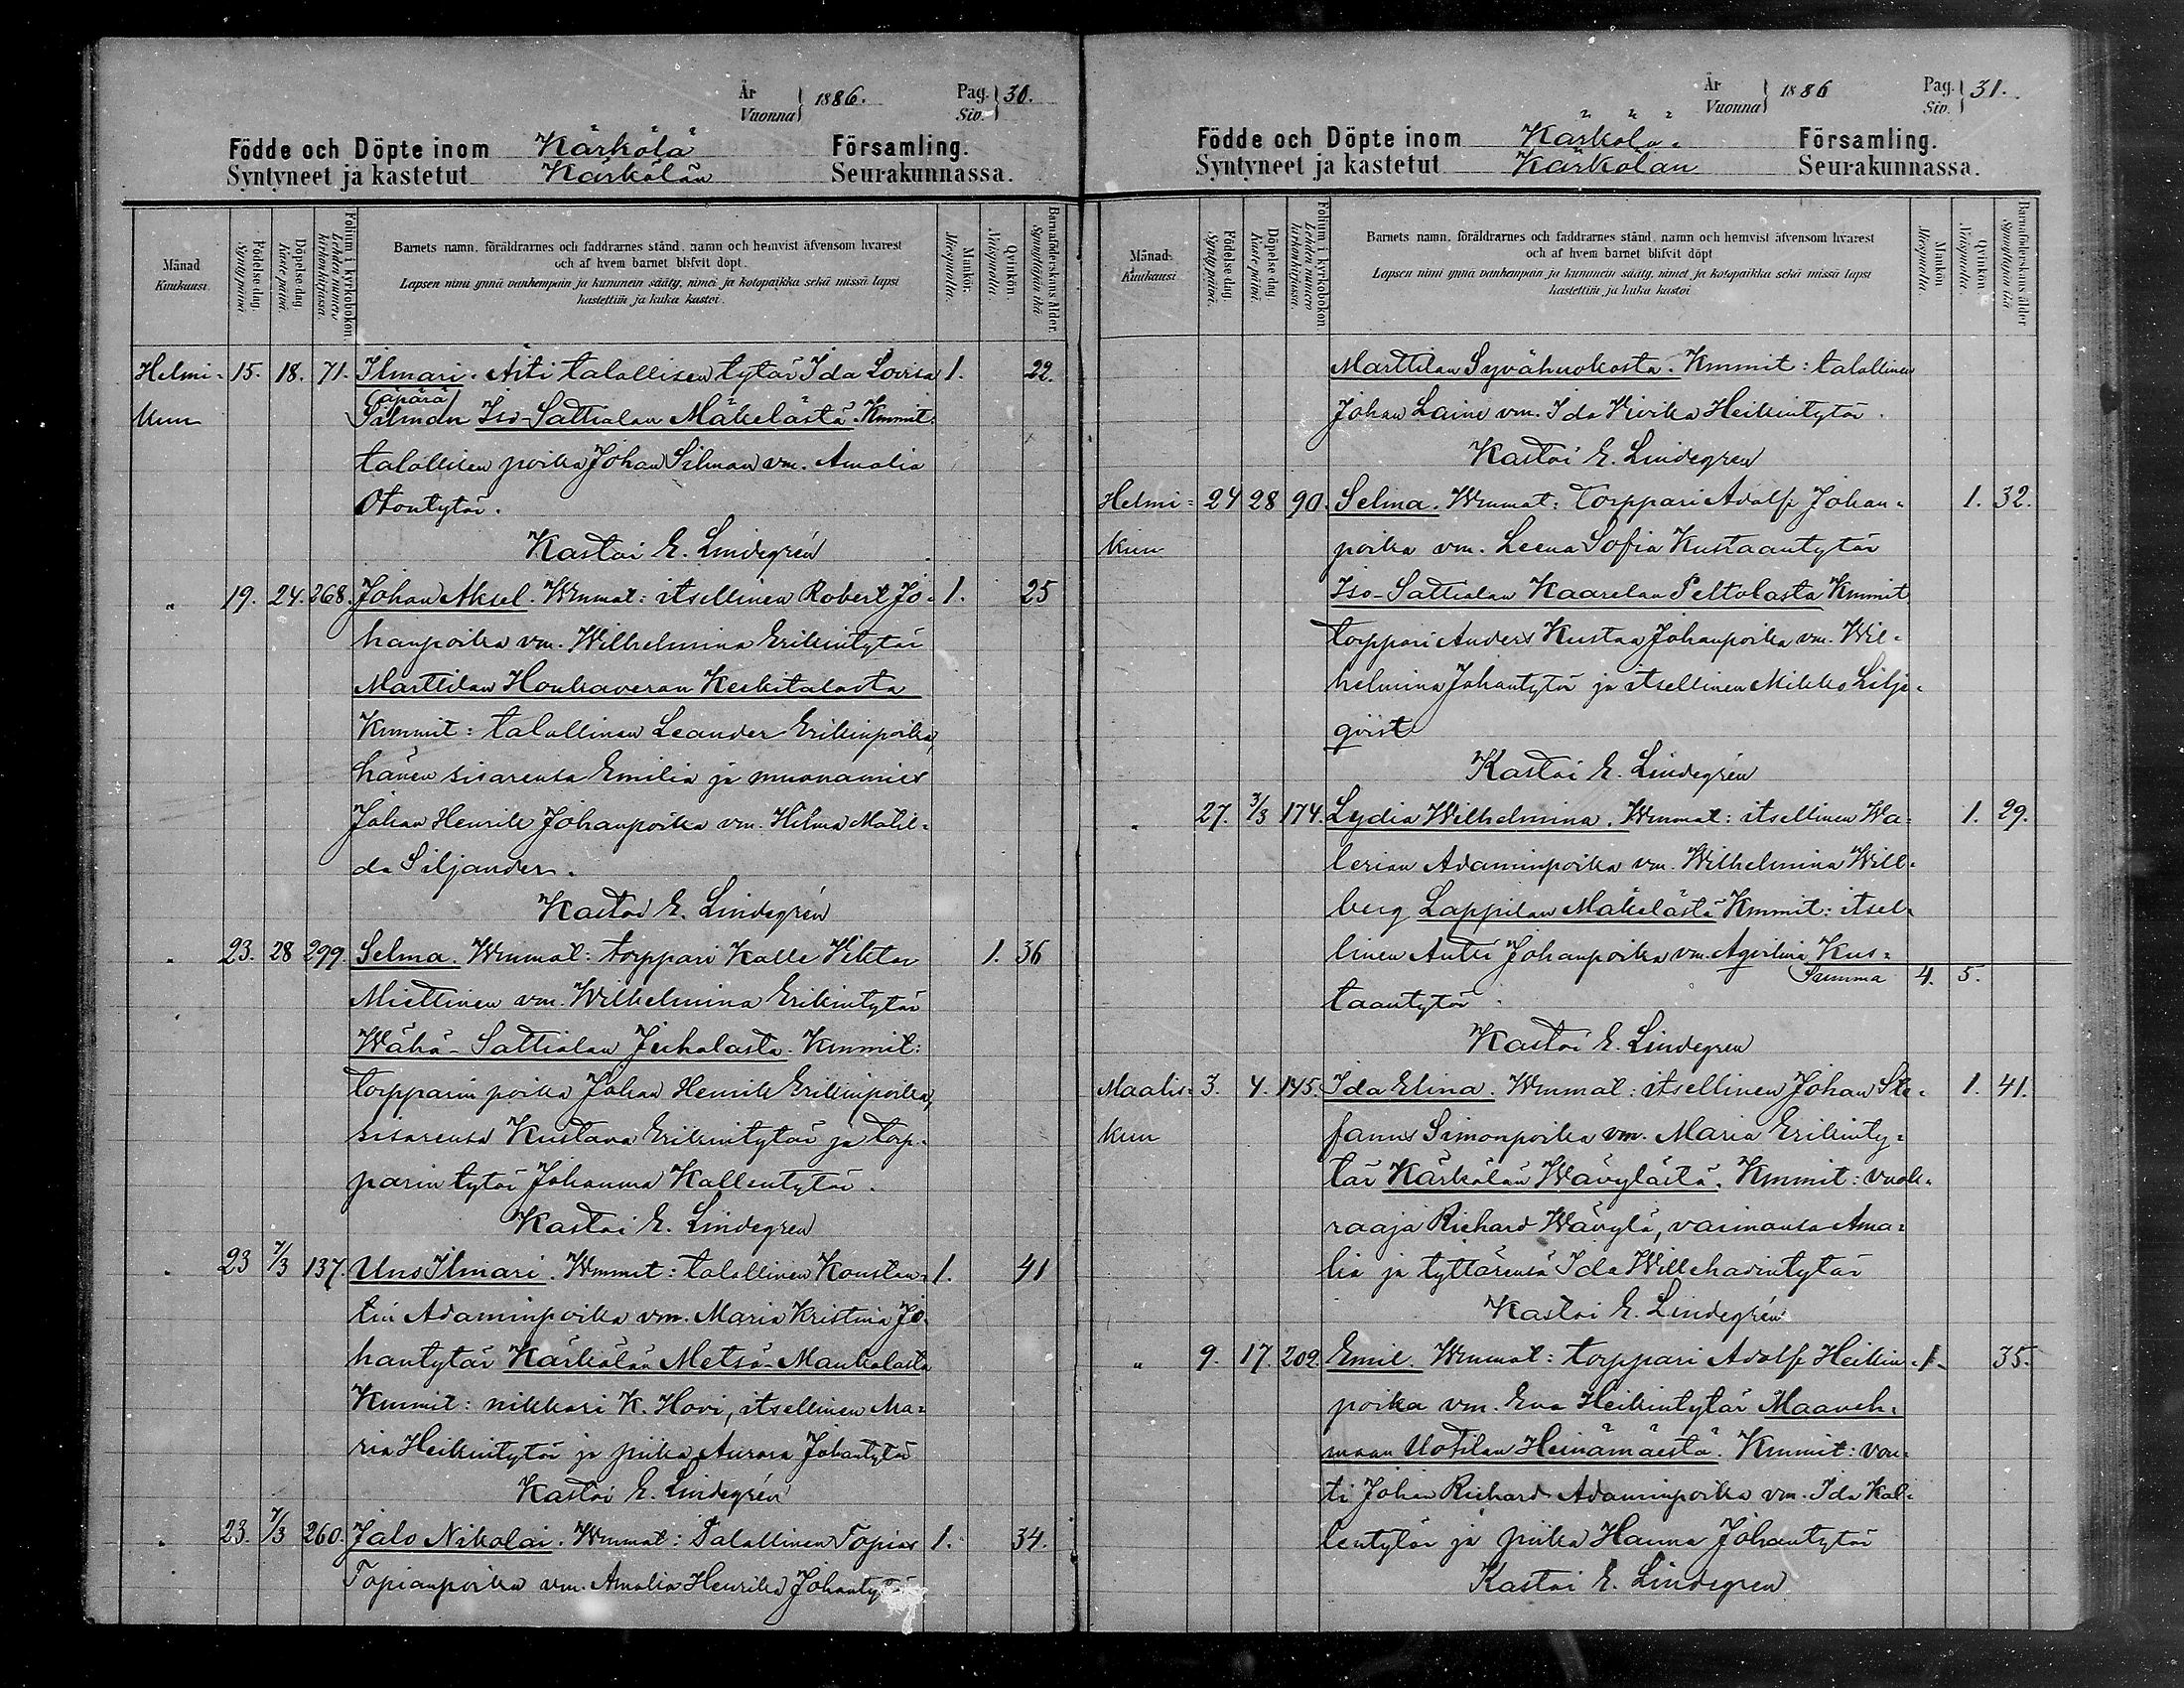 År
Vuonna } 1886. Pag.
Siv. } 30.
Födde och Döpte inom Kärkölä Församling.
Syntyneet ja kastetut Kärkölän Seurakunnassa.
Månad
Kuukausi.
Födelse dag.
Syntypäivä
Döpelse dag.
Kaste päivä
Folium i kyrkobokon.
Lehden numero kirkonkirjassa.
Barnets namn, föräldrarnes och faddrarnes stånd, namn och hemvist äfvensom hvarest
och af hvem barnet blifvit döpt.
Lapsen nimi ynnä vanhempain ja kummein sääty, nimet ja kotopaikka sekä missä lapsi
kastettiin ja kuka kastoi.
Mankön.
Miespuolia.
Qvinkön.
Naispuolia.
Barnaföderskans ålder.
Synnyttäjän ikä
Helmi- 15. 18. 71. Ilmari. Äiti talollisen tytär Ida Lovisa 1. 22.
(äpärä)
kuu Silman Iso-Sattialan Mäkelästä. Kummit:
talollisen poika Johan Silman vm. Amalia
Otontytär.
Kastoi E. Lindegrén
" 19. 24. 268. Johan Aksel. Wnmmat: itsellinen Robert Jo- 1. 25
hanpoika vm. Wilhelmina Erikintytär
Marttilan Honkaveran Keskitalosta
Kummit: talollinen Leander Erikinpoika,
hänen sisarensa Emilia ja muonamies
Johan Henrik Johanpoika vm. Hilma Matil-
da Siljander.
Kastoi E. Lindegrén
" 23. 28 299. Selma. Wnmmat: torppari Kalle Viktor 1. 36
Miettinen vm. Wilhelmina Erikintytär
Wähä-Sattialan Juhalasta. Kummit:
torpparin poika Johan Henrik Erikinpoika,
sisarensa Kustava Erikintytär ja torp-
parin tytär Johanna Kallentytär.
Kastoi E. Lindegren
" 23 7/3 137. Uno Ilmari. Wnmmat: talollinen Konstan- 1. 41
tin Adaminpoika vm. Maria Kristina Jo-
hantytär Kärkölän Metsä-Maukolasta
Kummit: nikkari K. Hovi, itsellinen Ma-
ria Heikintytär ja piika Aurora Johantytär
Kastoi E. Lindegrén
" 23. 7/3 260. Jalo Nikolai. Wnmmat: Talollinen Topias 1. 34.
Topianpoika vm. Amalia Henrika Johantytär
År
Vuonna } 1886 Pag.
Siv. } 31.
Födde och Döpte inom Kärkölä Församling.
Syntyneet ja kastetut Kärkölän Seurakunnassa.
Månad.
Kuukausi
Födelse dag.
Synty päivä.
Döpelse dag
Kaste päivä.
Folium i kyrkobokon
Lehden numero kirkonkirjassa.
Barnets namn, föräldrarnes och faddrarnes stånd, namn och hemvist äfvensom hvarest
och af hvem barnet blifvit döpt
Lapsen nimi ynnä vanhempain ja kummein sääty, nimet ja kotopaikka sekä missä lapsi
kastettiin ja kuka kastoi
Mankön
Miespuolia.
Qvinkön
Naispuolia.
Barnaföderskans ålder
Synnyttäjän ikä
Marttilan Syvähuokosta. Kummit: talollinen
Johan Laine vm. Ida Vivika Heikintytär.
Kastoi E. Lindegren
Helmi- 24 28 90. Selma. Wnmmat: Torppari Adolf Johan- 1. 32.
kuu poika vm. Leena Sofia Kustaantytär
Iso-Sattialan Kaarelan Peltolasta Kummit
torppari Anders Kustaa Johanpoika vm. Wil-
helmina Johantytär ja itsellinen Mikko Lilje-
qvist
Kastoi E. Lindegrén
" 27. 3/3 174. Lydia Wilhelmina. Wnmmat: itsellinen Wa- 1. 29.
lerian Adaminpoika vm. Wilhelmina Will-
berg Lappilan Mäkelästä Kummit: itsel-
linen Antti Johanpoika vm. Aqvilina Kus-
Summa 4. 5.
taantytär.
Kastoi E. Lindegren
Maalis- 3. 4. 145. Ida Elina. Wnmmat: itsellinen Johan Ste- 1. 41.
kuu fanus Simonpoika vm. Maria Erikinty-
tär Kärkölän Wävylästä. Kummit: vuok-
raaja Richard Wävylä, vaimonsa Ama-
lia ja tyttärensä Ida Willehadintytär
Kastoi E. Lindegrén
" 9. 17. 202. Emil. Wnmmat: torppari Adolf Heikin- 1. 35.
poika vm. Eva Heikintytär Maaveh-
maan Uotilan Heinämäestä. Kummit: vou-
ti Johan Richard Adaminpoika vm. Ida Kal-
lentytär ja piika Hanna Johantytär
Kastoi E. Lindegren